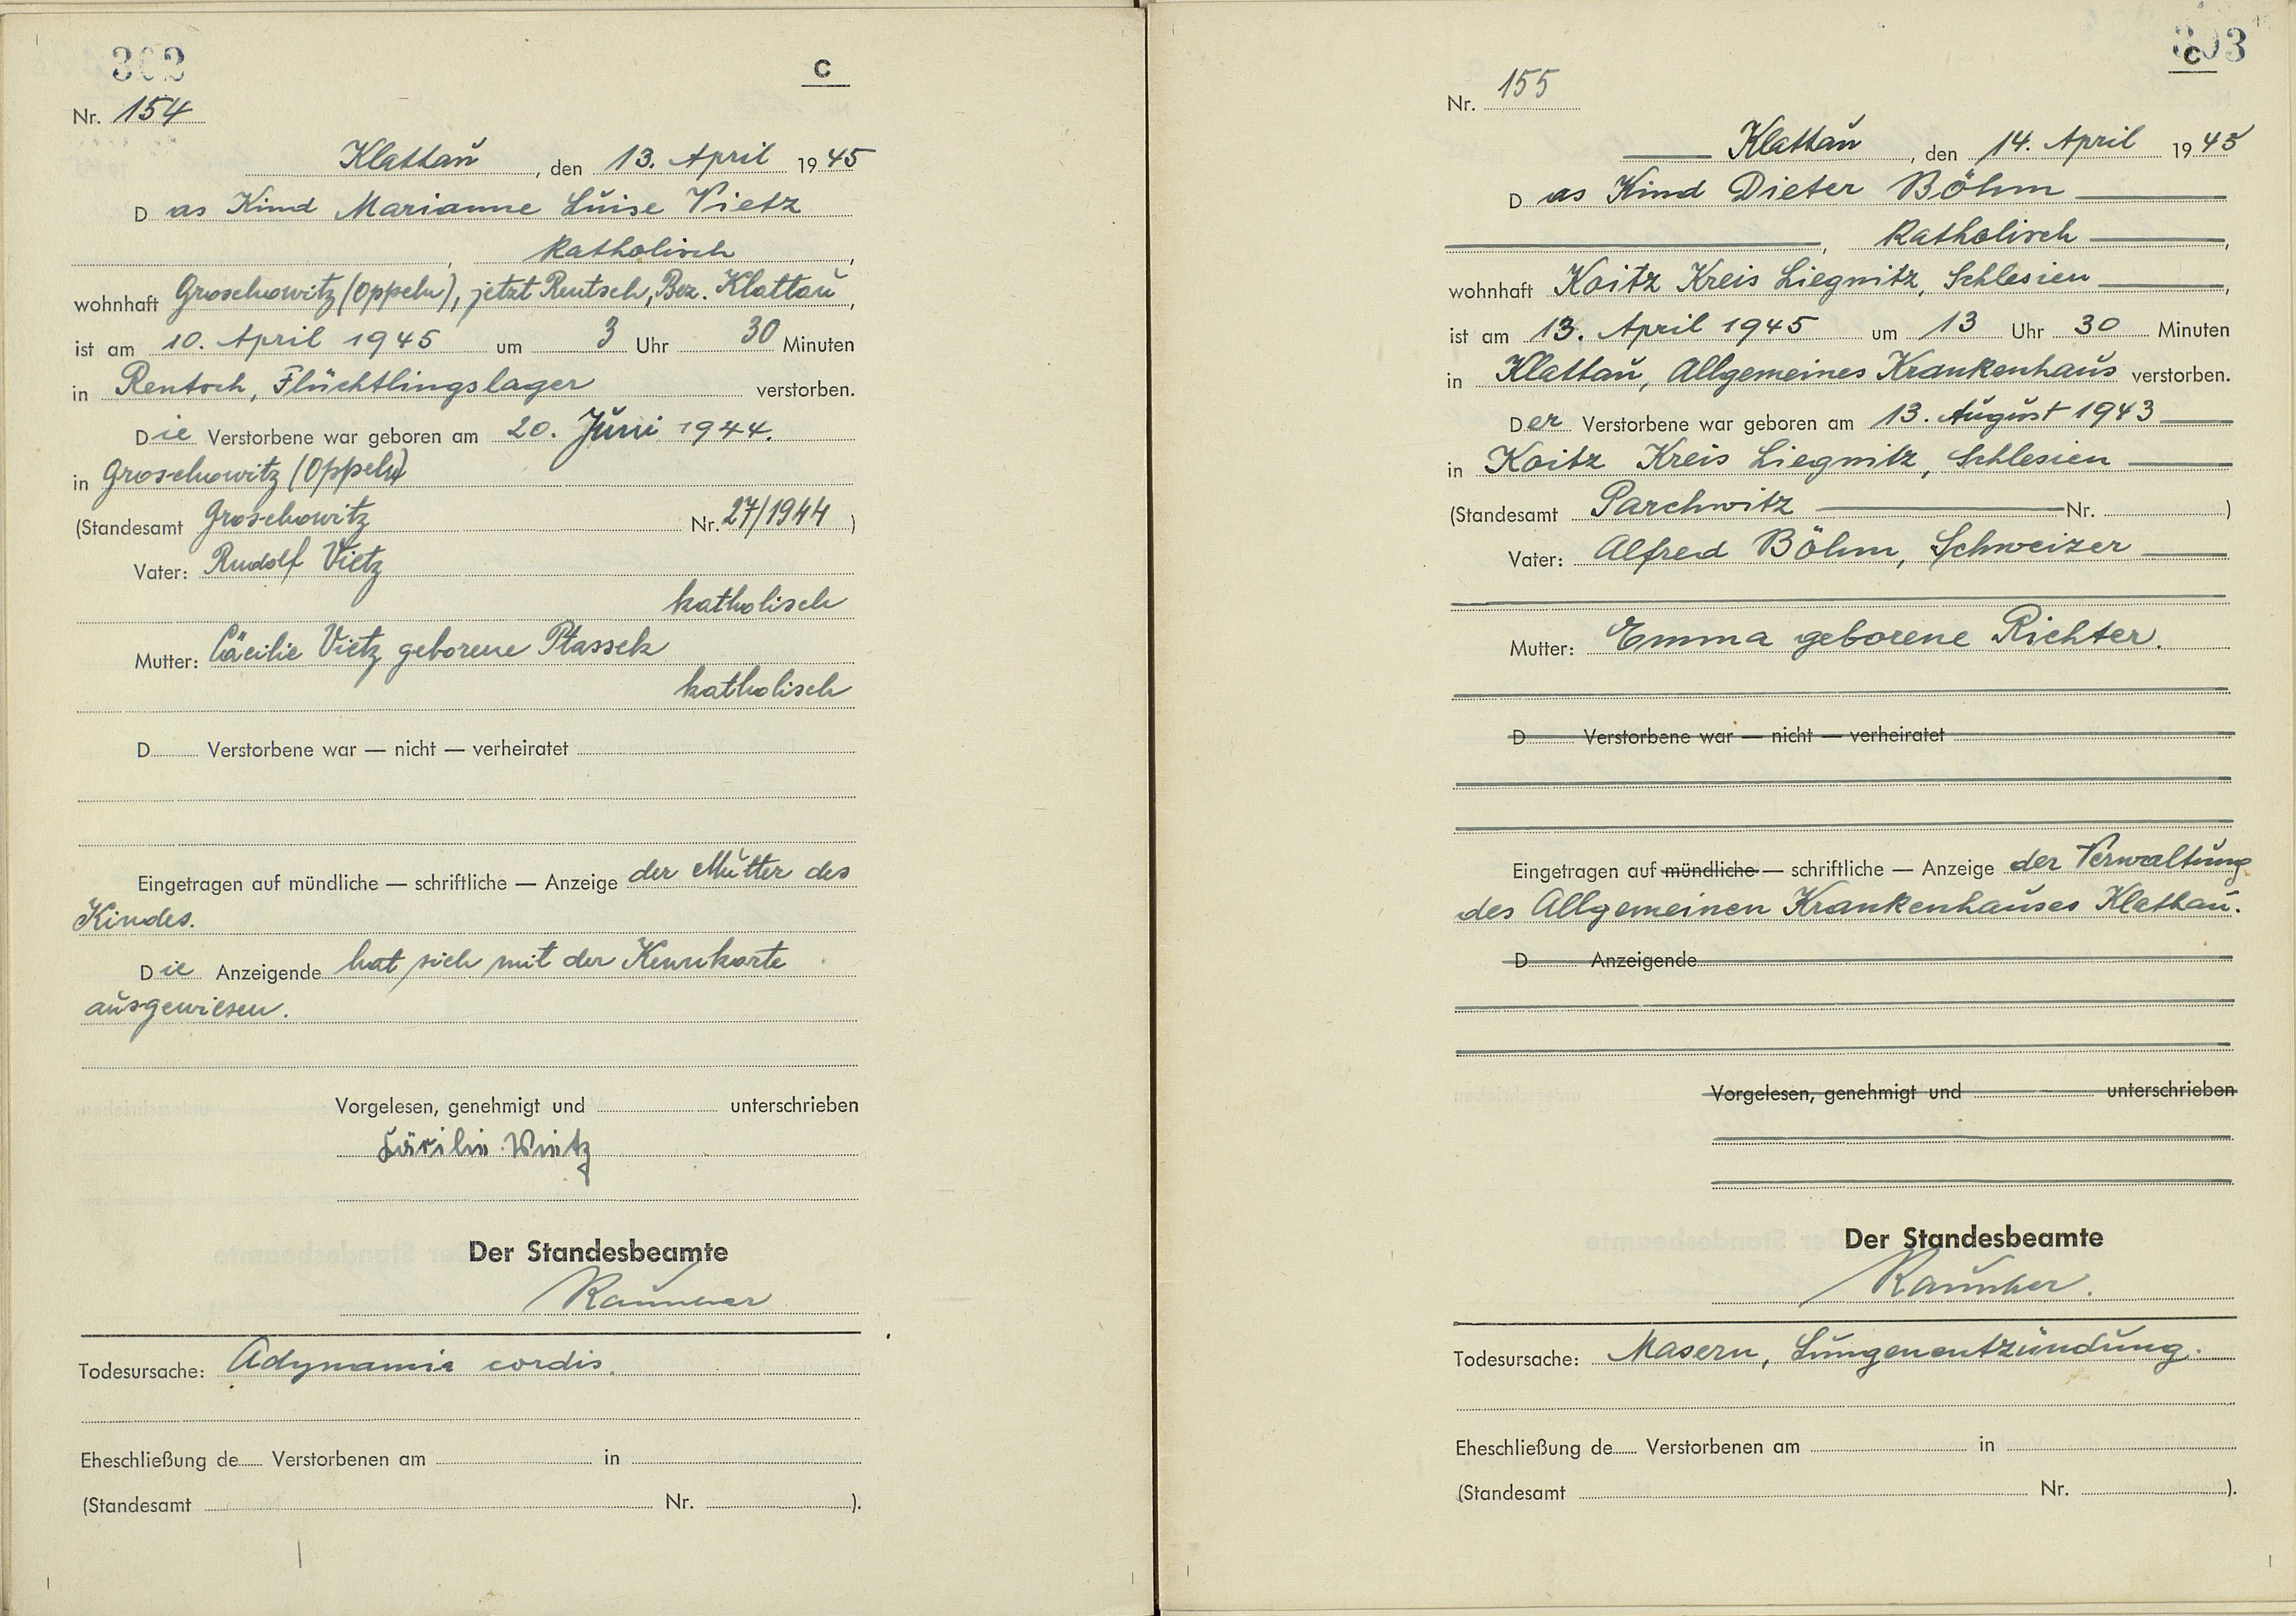 302
C
Nr. 154
Klattau, den 13. April 1945
Das Kind Marianne Luise Vietz
, katholisch,
wohnhaft Groschowitz (Oppeln), jetzt Rentsch, Bez. Klattau,
ist am 10. April 1945 um 3 Uhr 30 Minuten
in Rentsch, Flüchtlingslager verstorben.
Die Verstorbene war geboren am 20. Juni 1944.
in Groschowitz (Oppeln)
(Standesamt Groschowitz Nr. 27/1944)
Vater: Rudolf Vietz
katholisch
Mutter: Cäcilie Vietz geborene Ptassek
katholisch
D Verstorbene war — nicht — verheiratet
Eingetragen auf mündliche — schriftliche — Anzeige der Mutter des
Kindes.
Die Anzeigende hat sich mit der Kennkarte
ausgewiesen.
Vorgelesen, genehmigt und unterschrieben
Cäcilie Vietz
Der Standesbeamte
Todesursache: Adynamia cordis.
Eheschließung de Verstorbenen am in
(Standesamt Nr. ).
303
C
Nr. 155
Klattau, den 14. April 1945
Das Kind Dieter Böhm
, katholisch,
wohnhaft Koitz Kreis Liegnitz, Schlesien,
ist am 13. April 1945 um 13 Uhr 30 Minuten
in Klattau, Allgemeines Krankenhaus verstorben.
Der Verstorbene war geboren am 13. August 1943
in Koitz Kreis Liegnitz, Schlesien
(Standesamt Parchwitz Nr. )
Vater: Alfred Böhm, Schweizer
Mutter: Emma geborene Richter.
D Verstorbene war — nicht — verheiratet
Eingetragen auf mündliche — schriftliche — Anzeige der Verwaltung
des Allgemeinen Krankenhauses Klattau.
D Anzeigende
Vorgelesen, genehmigt und unterschrieben
Der Standesbeamte
Todesursache: Masern, Lungenentzündung.
Eheschließung de Verstorbenen am in
(Standesamt Nr. ).